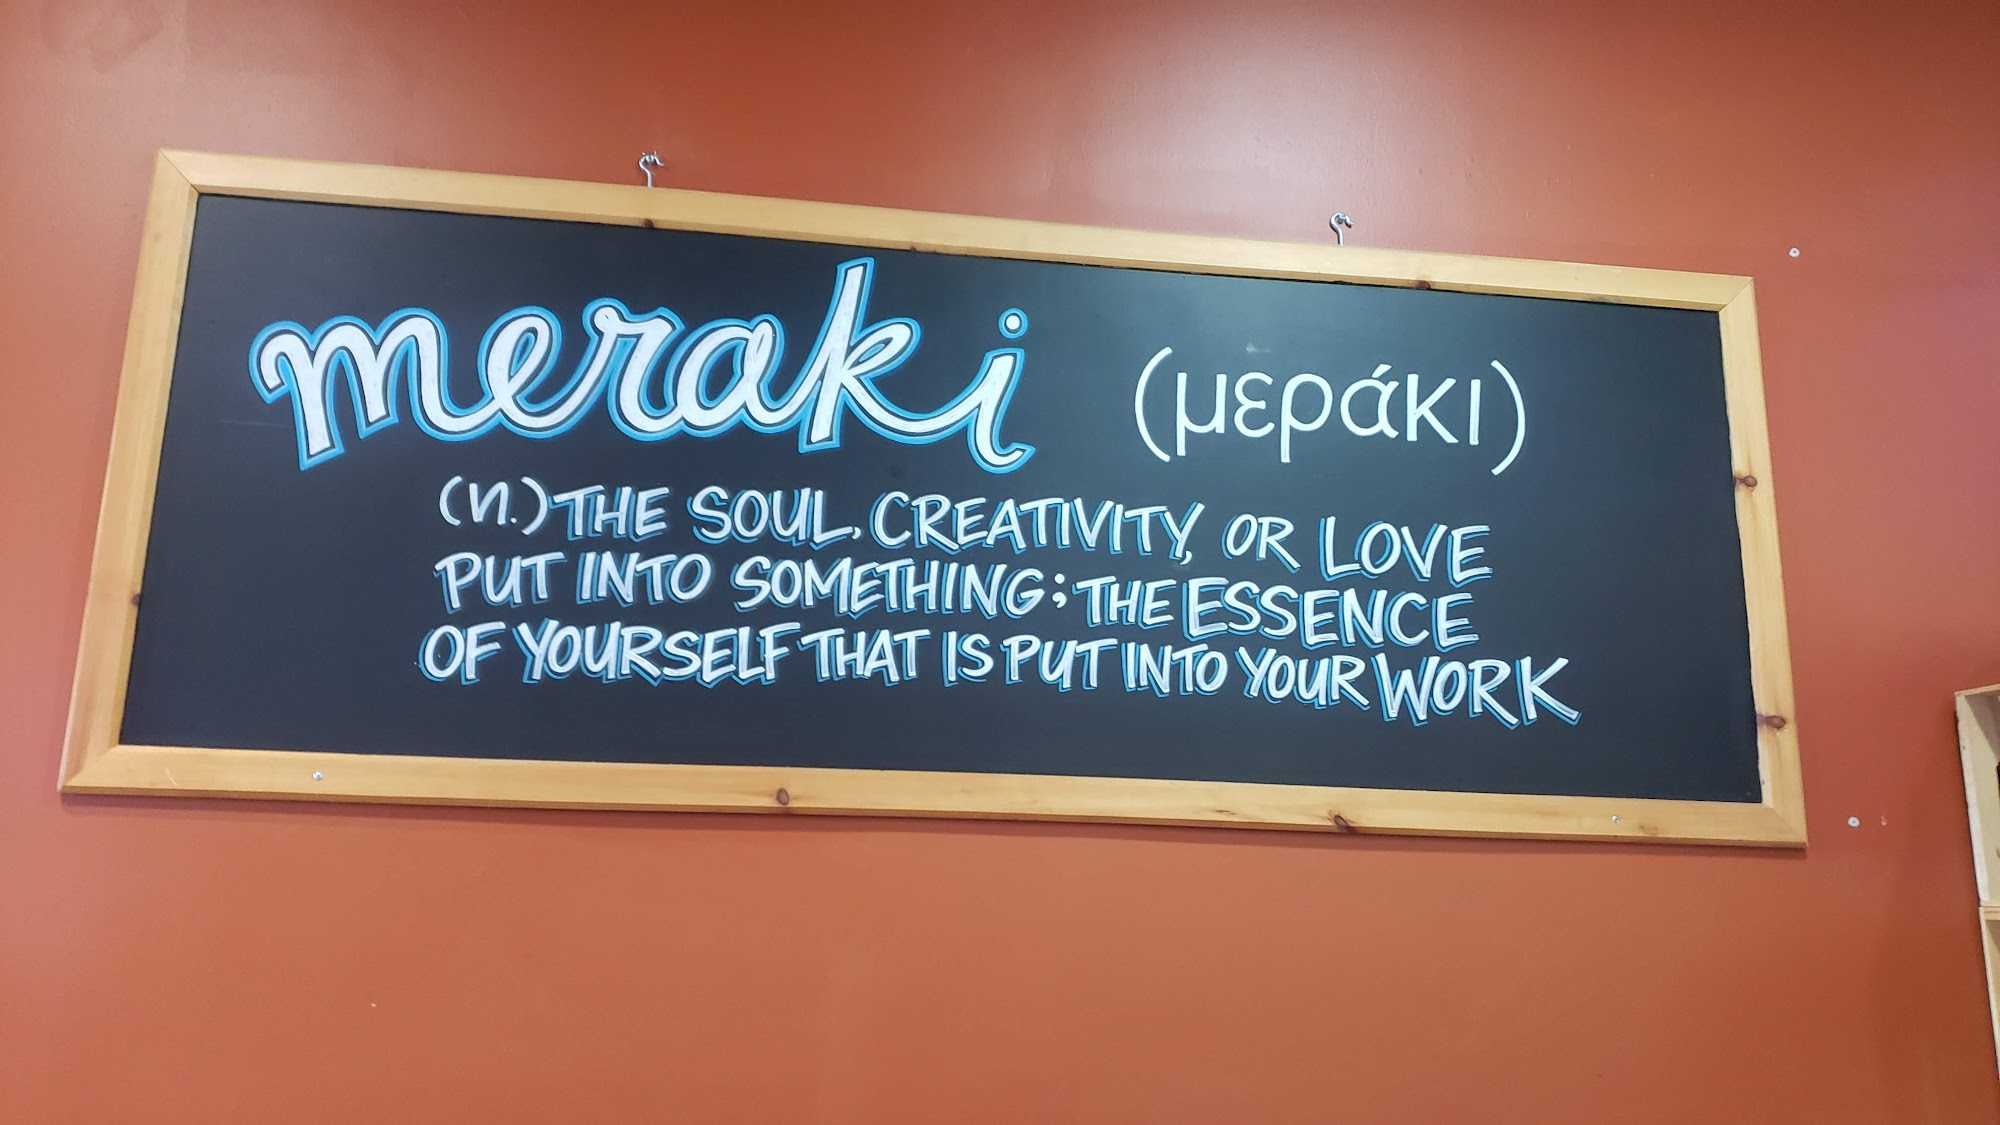 meraki (μεράκι)
(n.) THE SOUL, CREATIVITY, OR LOVE
PUT INTO SOMETHING; THE ESSENCE
OF YOURSELF THAT IS PUT INTO YOUR WORK